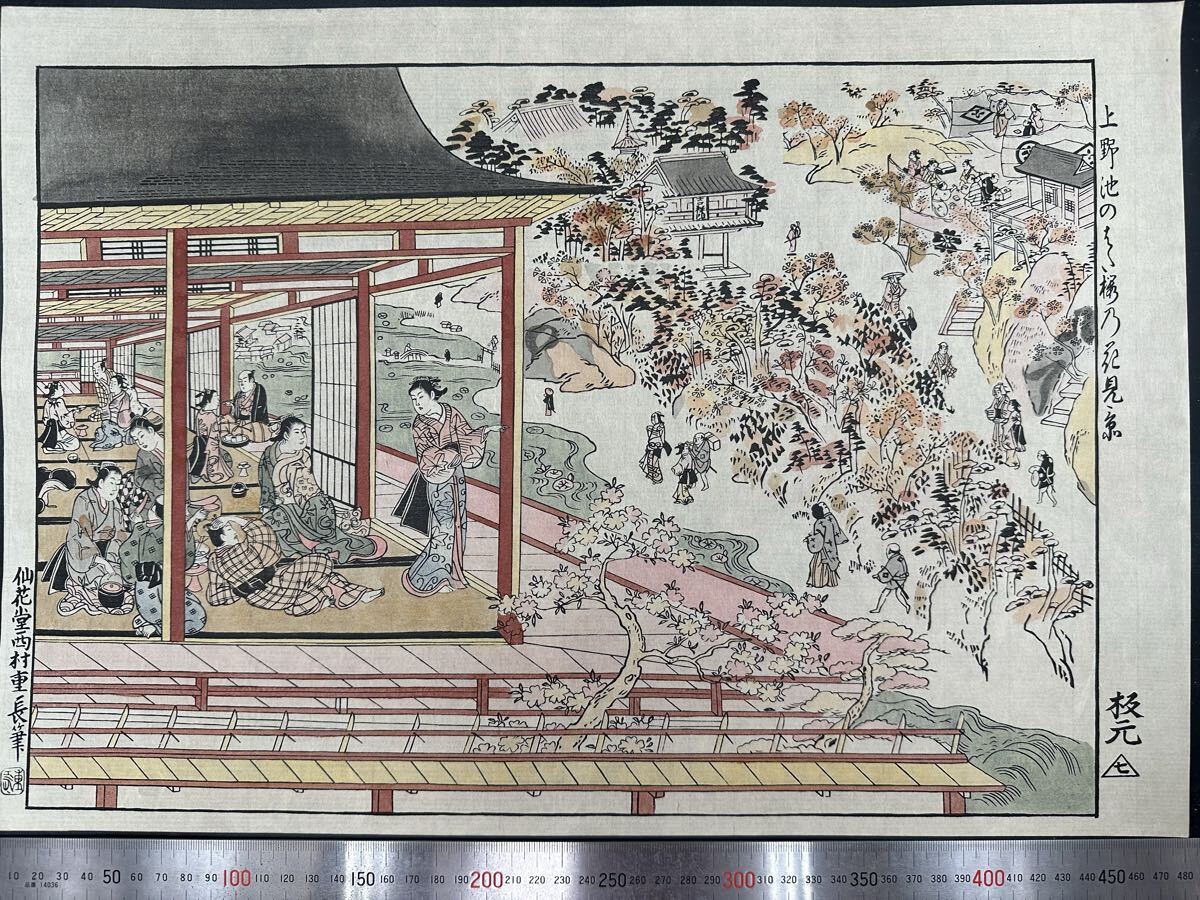 上野池のはた桜乃花見京
板元
七
仙花堂西村重長筆
10 20 30 40 50 60 70 80 90 100 110 120 130 140 150 160 170 180 190 200 210 220 230 240 250 260 270 280 290 300 310 320 330 340 350 360 370 380 390 400 410 420 430 440 450 460 470 480
品番 14036